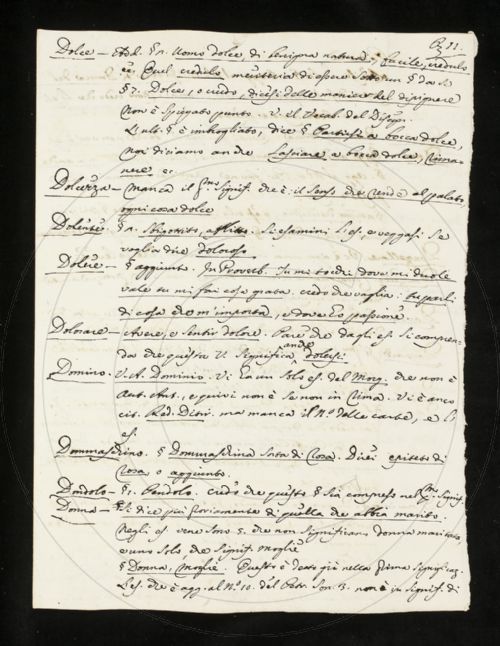 Dolce — Add. § 1. Uomo dolce, di benigna natura, facile, credulo
ec. Quel credulo meriteria di essere sotto un § da se
§ 7. Dolce, o crudo, dicesi delle maniere del dipignere
non è spiegato punto. V. il Vocab. del Disegn.
L'ult. § è imbrogliato, dice § Partirsi a bocca dolce,
noi diciamo anche Lasciare a bocca dolce, rima-
nere ec
Dolcezza — Manca il pmo signif. che è: il senso che rende al palato
ogni cosa dolce
Dolente § 1. Sbigottito, afflitto. Si esamini l'es. e veggasi se
voglia dire doloroso
Dolere — § aggiunto. In Proverb. Tu mi tocchi dove mi duole
vale tu mi fai cosa grata. credo che vaglia: tu parli
di cosa che m'importa, e dove ho passione.
Dolorare — Avere, o sentir dolore. Pare che dagli es. si compren-
da che questa V. significa anche dolersi.
Domino. V. A. Dominio. Vi ha un solo es. del Morg. che non è
Aut. Ant., e quivi non è se non in rima. Vi è anco
cit. Red. Ditir. ma manca il N.o delle carte, e l'
es.
Dommaschino. § Dommaschina sorta di rosa. Direi epiteto di
rosa, o aggiunto.
Dondolo — § 1. Dondolo. credo che questo § sia compreso nel signif.
Donna — § Si dice più sovente di quella che abbia marito.
Negli es ve ne sono 5. che non significano donna maritata
e uno solo, che signif. moglie
§ Donna, moglie. Questo è detto già nella prima significaz.
L'es. che è agg. al N.o 10. del Petr. Son. 3. non è in signif. di